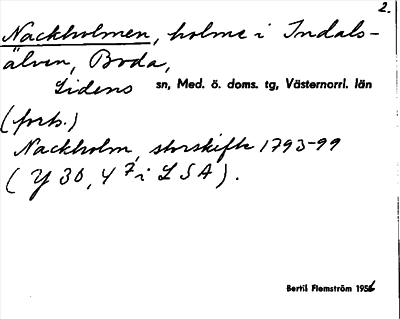 2.
Nackholmen, holme i Indals-
älven, Boda,
Lidens sn, Med. ö. doms. tg, Västernorrl. län
(forts.)
Nackholm, storskifte 1793-99
(Y 30, 4⁷ i LSA).
Bertil Flemström 1956